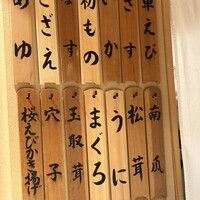 車えび
きす
いか
粉もの
なす
さざえ
あゆ
南瓜
松茸
うに
まぐろ
玉取茸
穴子
桜えびかき揚げ